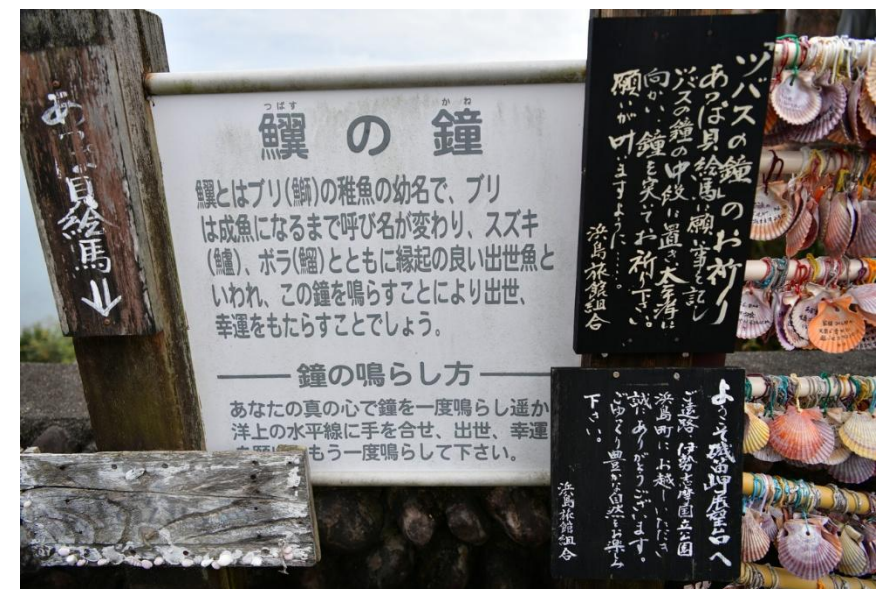 あっぱ貝絵馬
つばす かね
鱵の鐘
鱵とはブリ(鰤)の稚魚の幼名で、ブリ
は成魚になるまで呼び名が変わり、スズキ
(鱸)、ボラ(鰡)とともに縁起の良い出世魚と
いわれ、この鐘を鳴らすことにより出世、
幸運をもたらすことでしょう。
鐘の鳴らし方
あなたの真の心で鐘を一度鳴らし遥か
洋上の水平線に手を合せ、出世、幸運
を願い もう一度鳴らして下さい。
ツバスの鐘のお祈り
あっぱ貝絵馬に願い事を記し
ツバスの鐘の中段に置き太平洋に
向かい鐘を突いてお祈り下さい。
願いが叶いますように……。
浜島旅館組合
ようこそ磯笛岬展望台へ
ご遠路 伊勢志摩国立公園
浜島町にお越しいただき
誠にありがとうございます。
ごゆっくり豊かな自然をお楽しみ
下さい。
浜島旅館組合